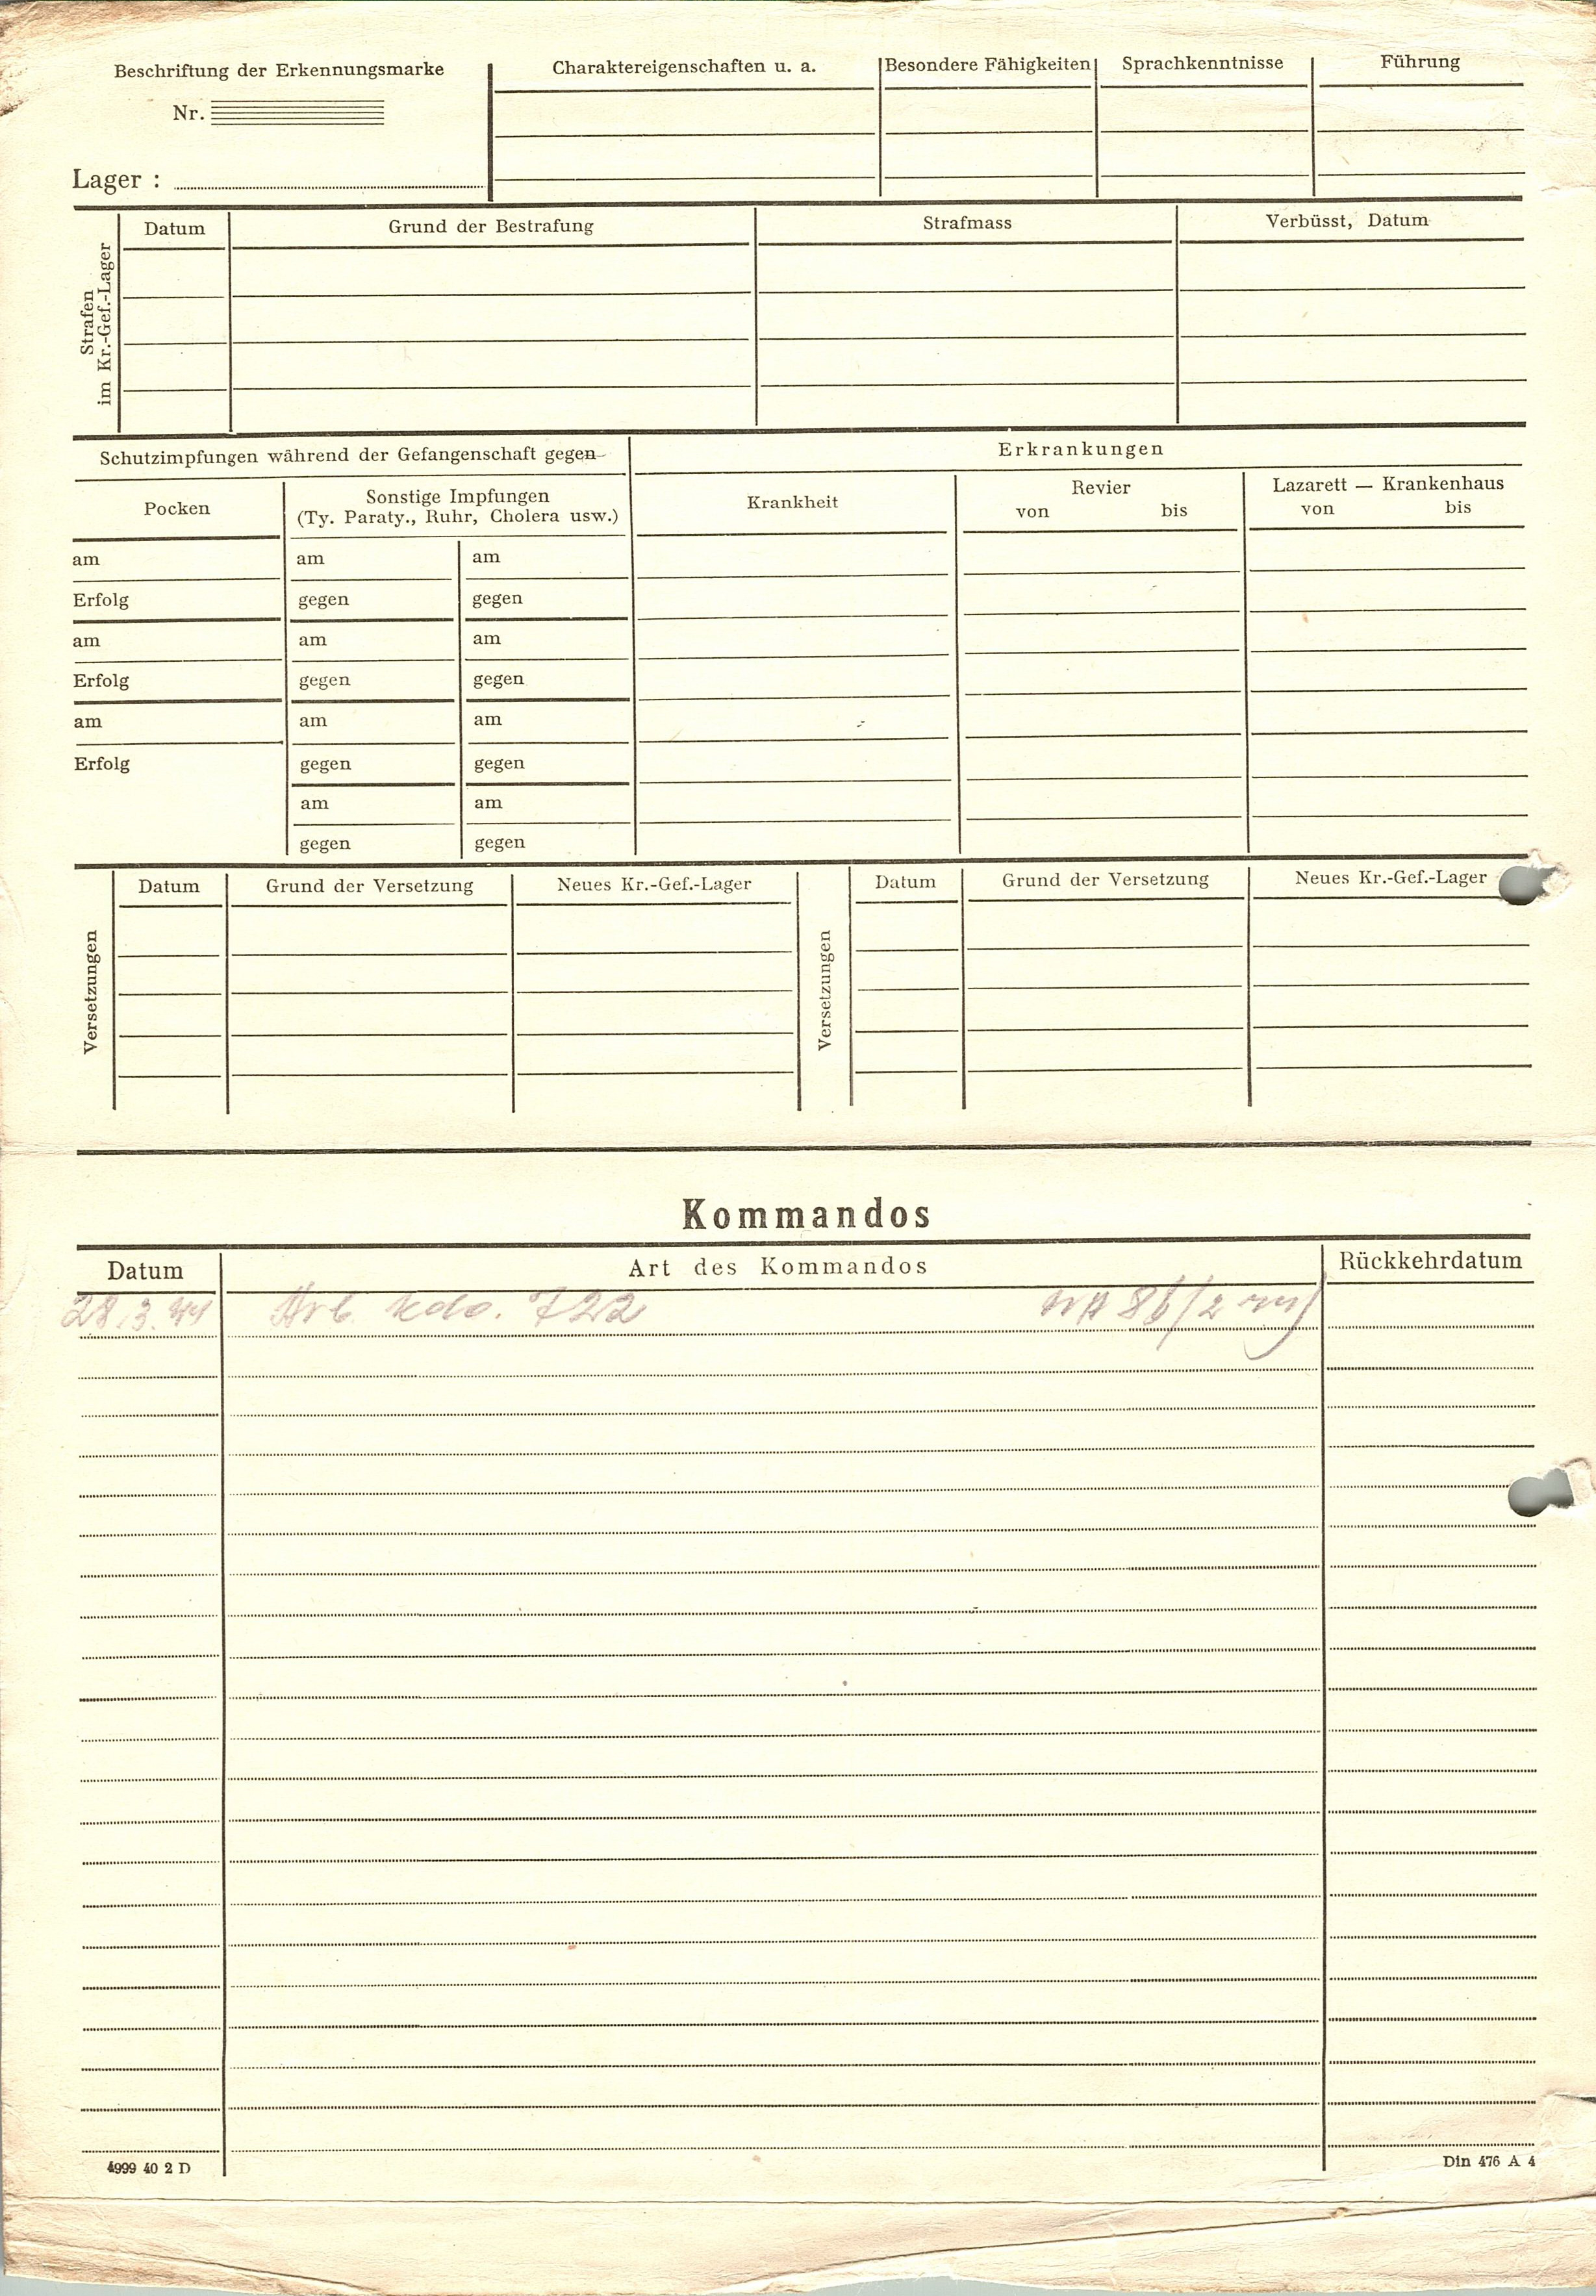 Beschriftung der Erkennungsmarke
Nr.
Lager :
Charaktereigenschaften u. a.
Besondere Fähigkeiten
Sprachkenntnisse
Führung
Strafen
im Kr.-Gef.-Lager
Datum
Grund der Bestrafung
Strafmass
Verbüsst, Datum
Schutzimpfungen während der Gefangenschaft gegen
Erkrankungen
Pocken
Sonstige Impfungen
(Ty. Paraty., Ruhr, Cholera usw.)
Krankheit
Revier
von bis
Lazarett — Krankenhaus
von bis
am am am
Erfolg gegen gegen
am am am
Erfolg gegen gegen
am am am
Erfolg gegen gegen
am am
gegen gegen
Versetzungen
Datum
Grund der Versetzung
Neues Kr.-Gef.-Lager
Versetzungen
Datum
Grund der Versetzung
Neues Kr.-Gef.-Lager
Kommandos
Datum Art des Kommandos Rückkehrdatum
28.3.44 Arb. Kdo. 722
4999 40 2 D
Din 476 A 4